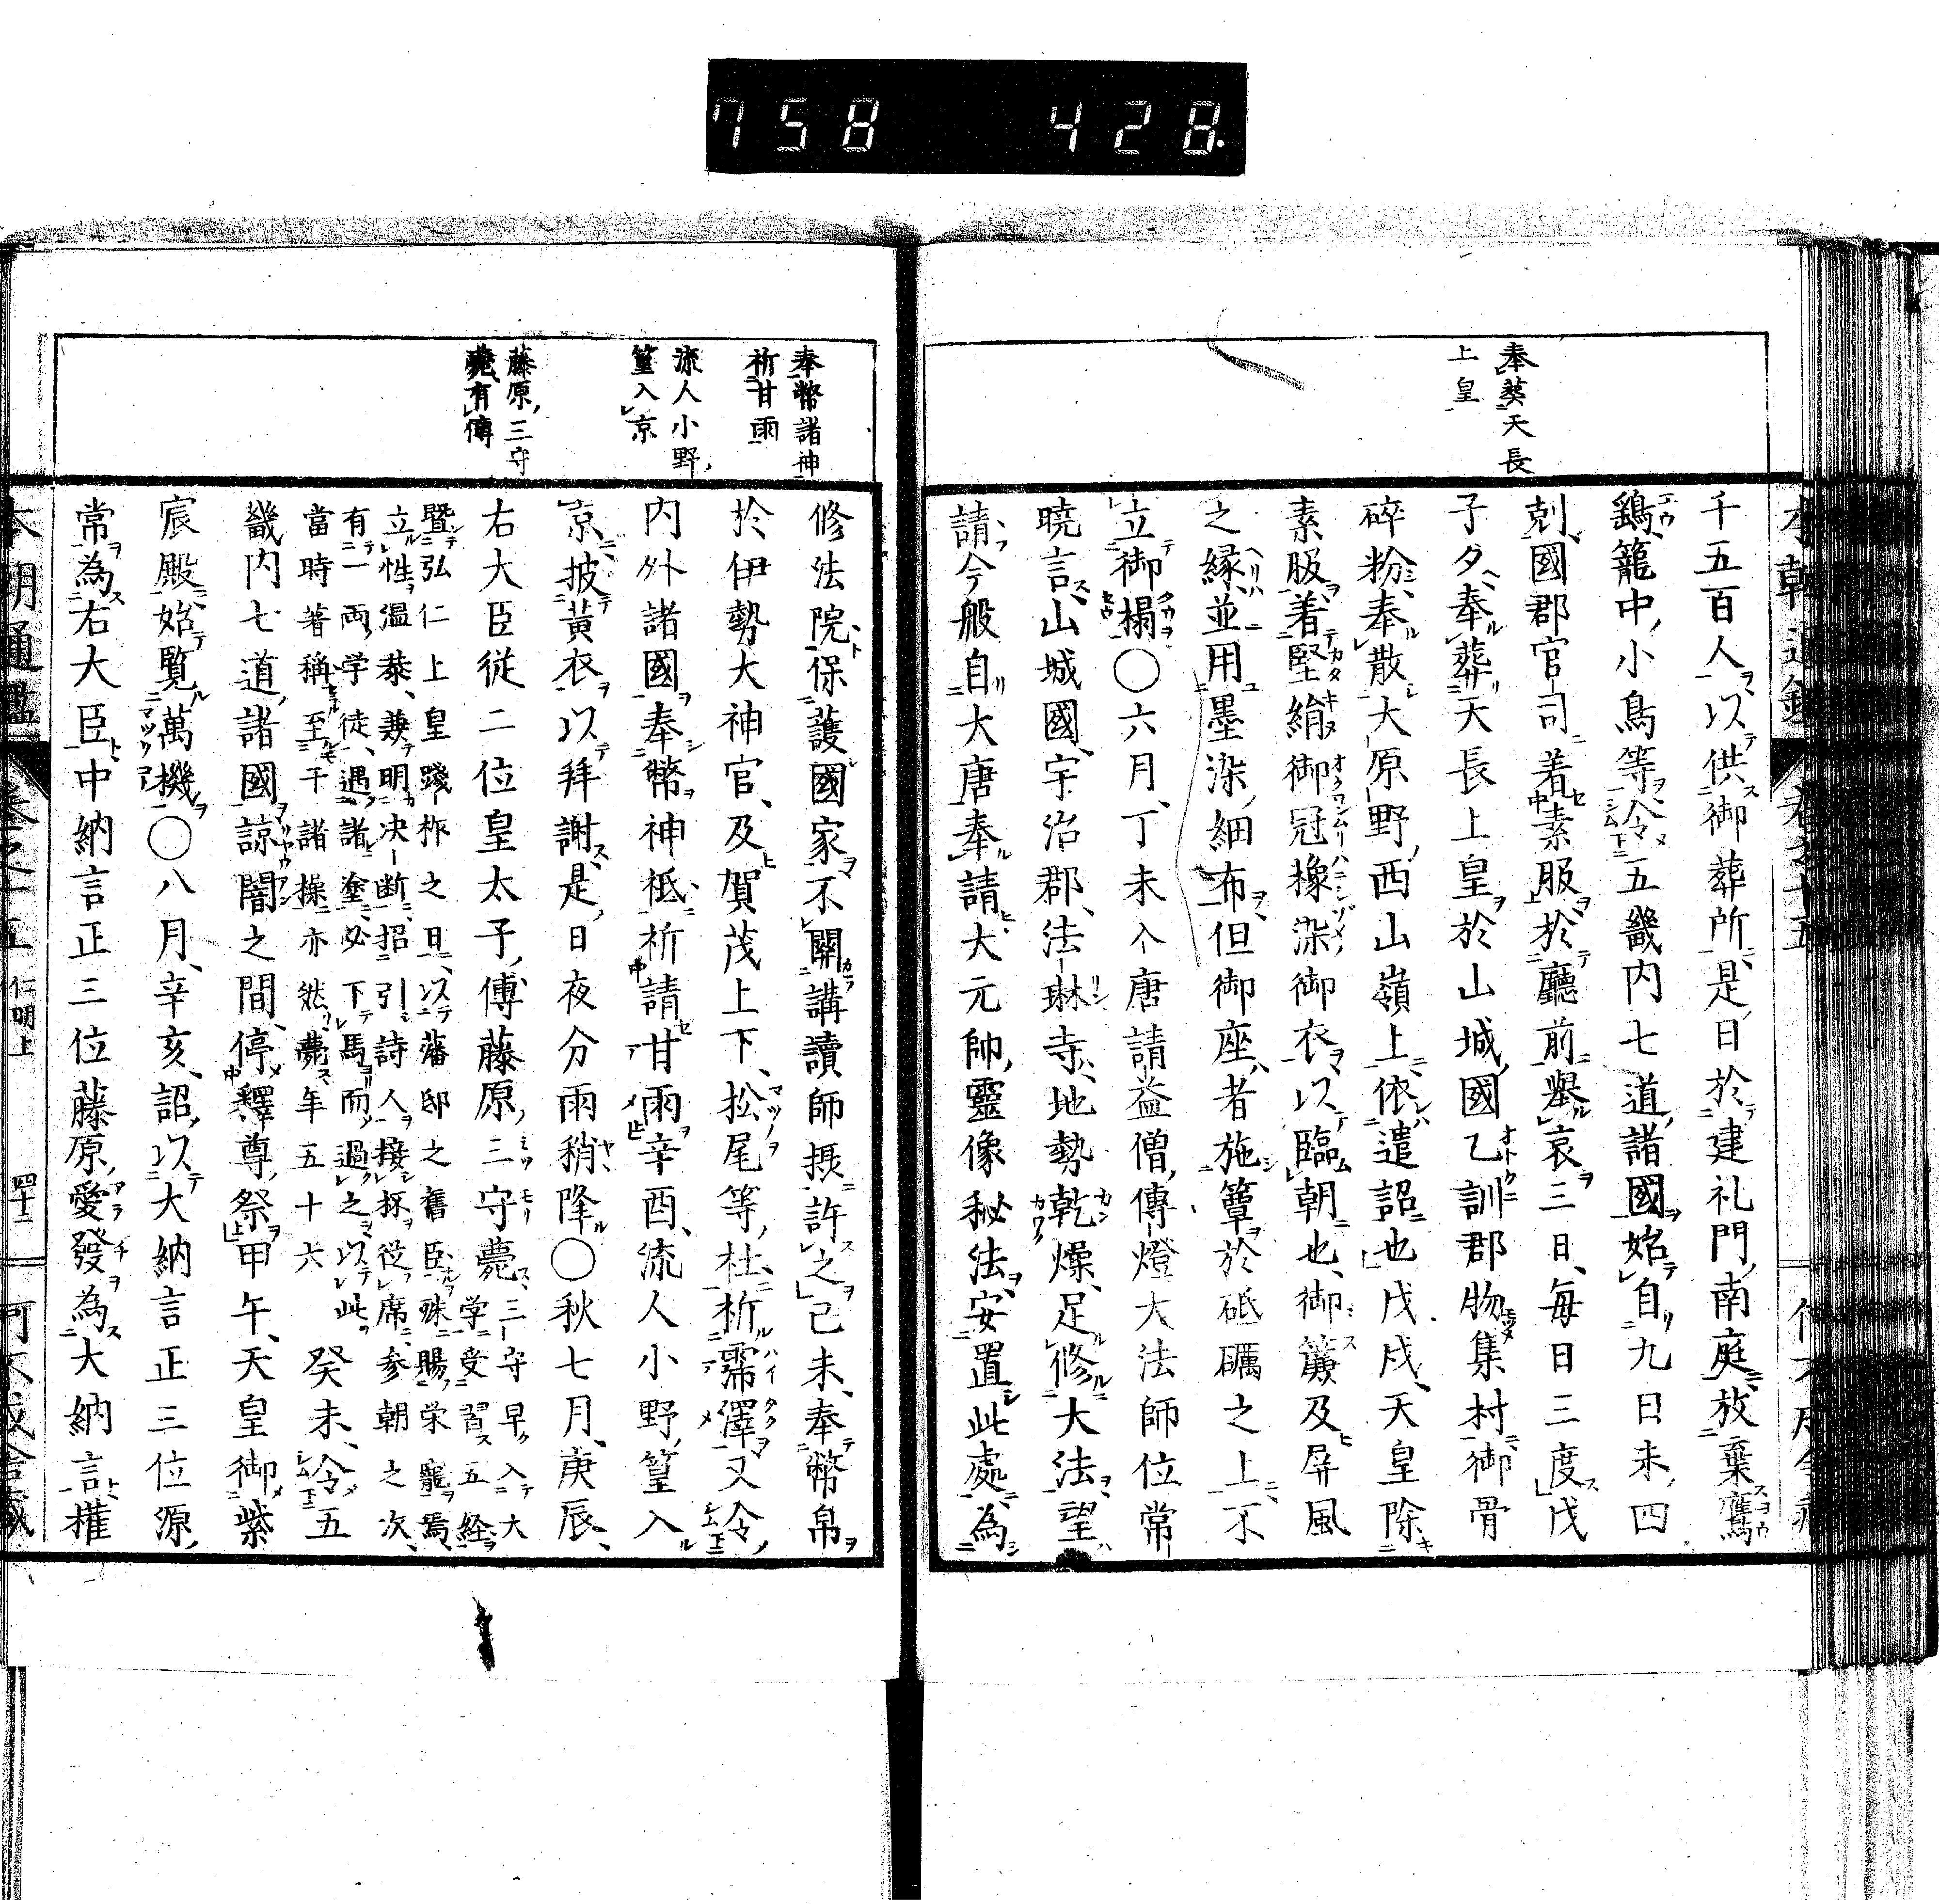 758 428.
奉葬天長
上皇
千五百人以供御葬所是日於建礼門南庭放棄鷹
鷂籠中小鳥等令五畿内七道諸國始自九日未四
剋國郡官司着素服於廳前擧哀三日毎日三度戊
子夕奉葬天長上皇於山城國乙訓郡物集村御骨
碎粉奉散大原野西山嶺上依遺詔也戊戌天皇除
素服着堅絹御冠橡染御衣以臨朝也御簾及屏風
之縁並用墨染細布但御座者施簟於砥礪之上不
立御榻〇六月丁未入唐請益僧傳燈大法師位常
曉言山城國宇治郡法琳寺地勢乾燥足修大法望
請今般自大唐奉請大元帥靈像秘法安置此處為
奉幣諸神
祈甘雨
流人小野
篁入京
藤原三守
薨有傳
修法院保護國家不關講讀師摂許之己未奉幣帛
於伊勢大神官及賀茂上下松尾等社祈霈澤又令
内外諸國奉幣神祇祈請甘雨辛酉流人小野篁入
京披黄衣以拜謝是日夜分雨稍降〇秋七月庚辰
右大臣從二位皇太子傅藤原三守薨三守早入大
学受習五経
曁弘仁上皇踐祚之日以藩邸之舊臣殊賜栄寵焉
立性温恭兼明决断招引詩人接杯促席参朝之次
有一両学徒遇諸塗必下馬而過之以此
當時著稱至于諸操亦然薨年五十六
癸未令五
畿内七道諸國諒闇之間停釋尊祭甲午天皇御紫
宸殿始覧萬機〇八月辛亥詔以大納言正三位源
常為右大臣中納言正三位藤原愛發為大納言權
本朝通鑑 卷之十五 仁明上 四十二